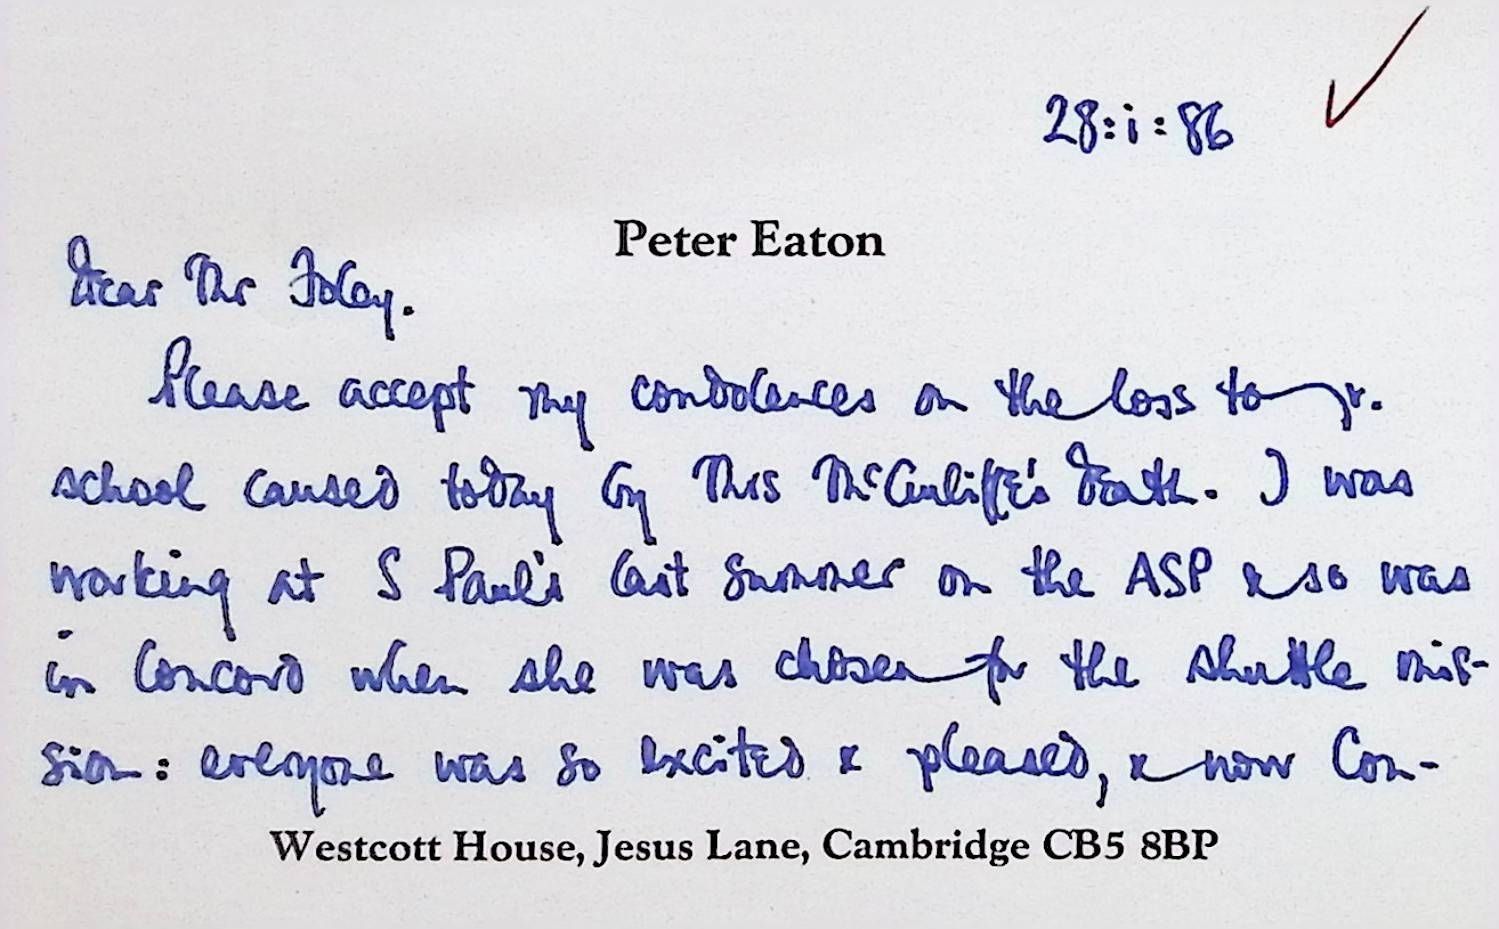 28:i:86
Peter Eaton
Dear Mr Foley.
Please accept my condolences on the loss to yr.
school caused today by Miss McCauliffe's death. I was
working at S Paul's last summer on the ASP & so was
in Concord when she was chosen for the shuttle mis-
sion: everyone was so excited & pleased, & now Con-
Westcott House, Jesus Lane, Cambridge CB5 8BP